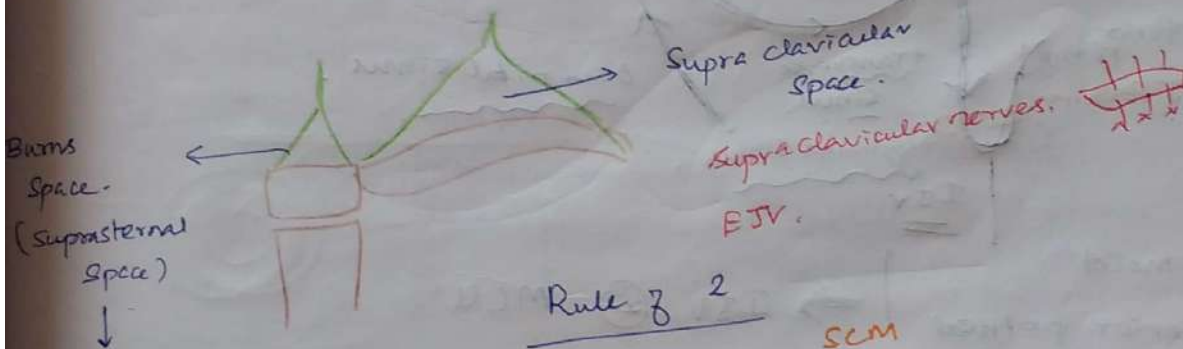 Supra clavicular
Space.
Supra clavicular nerves.
EJV.
Burns
Space.
(Suprasternal
Space)
Rule of 2
SCM